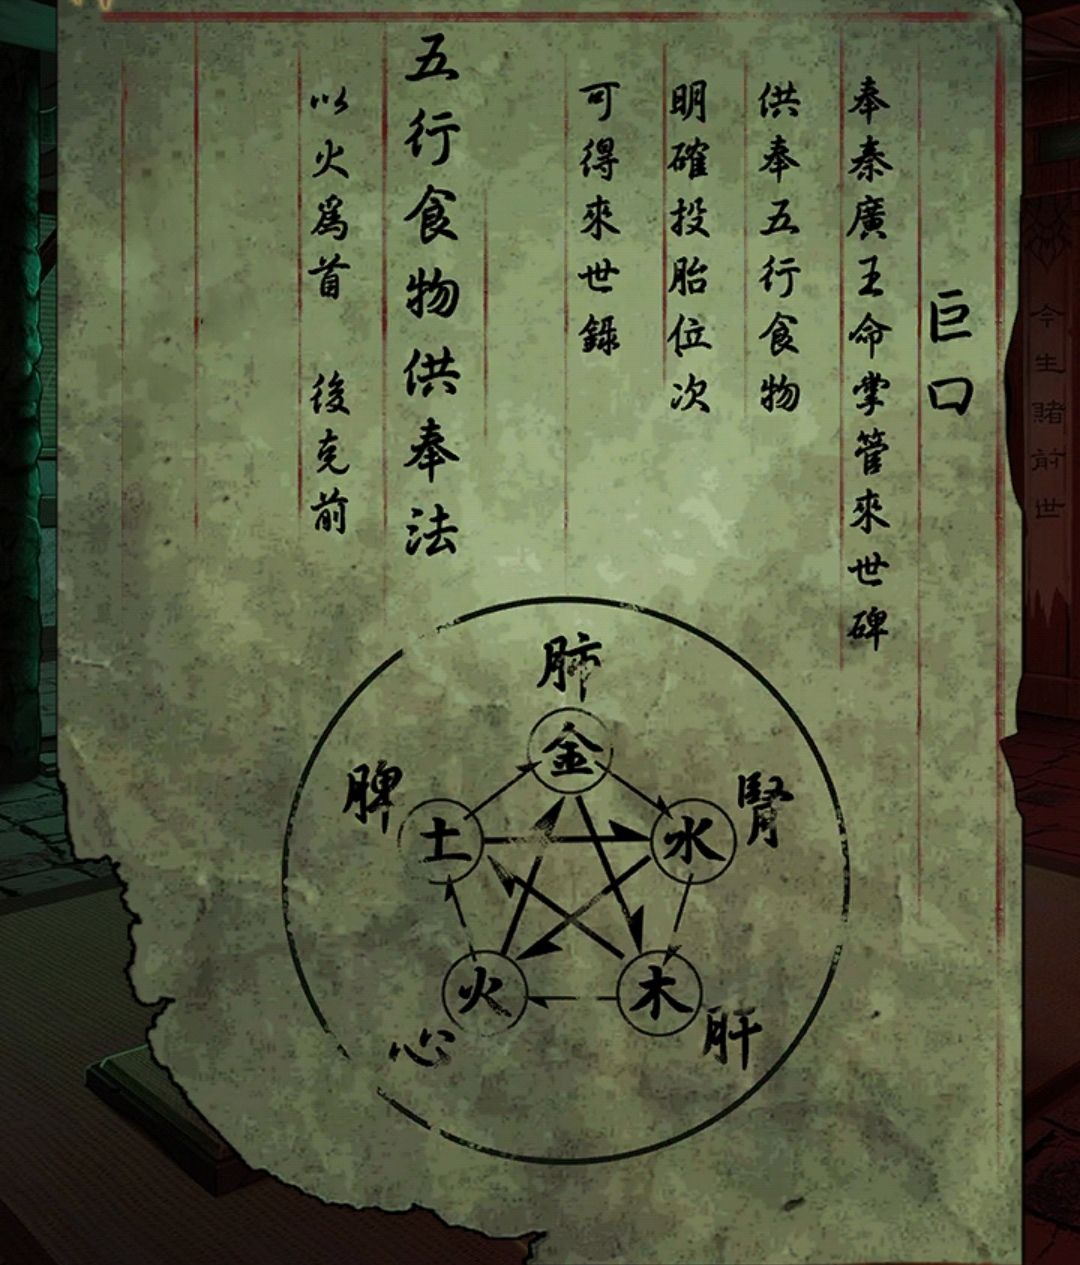 巨口
奉秦廣王命掌管來世碑
供奉五行食物
明確投胎位次
可得來世錄
五行食物供奉法
以火為首 後克前
肺
金
脾
土
水
腎
火
心
木
肝
今生賭前世